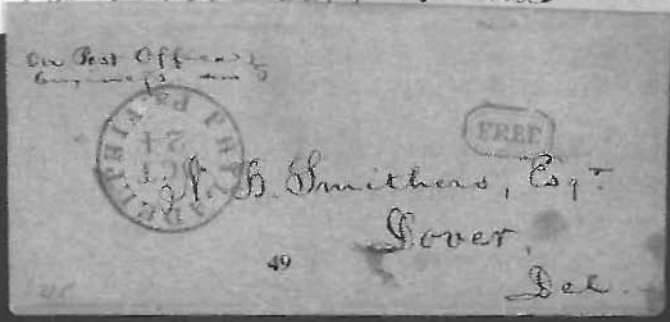 On Post Office
business only
PHILADELPHIA Pa.
OCT
24
FREE
N. B. Smithers, Esqr.
Dover,
Del.
49